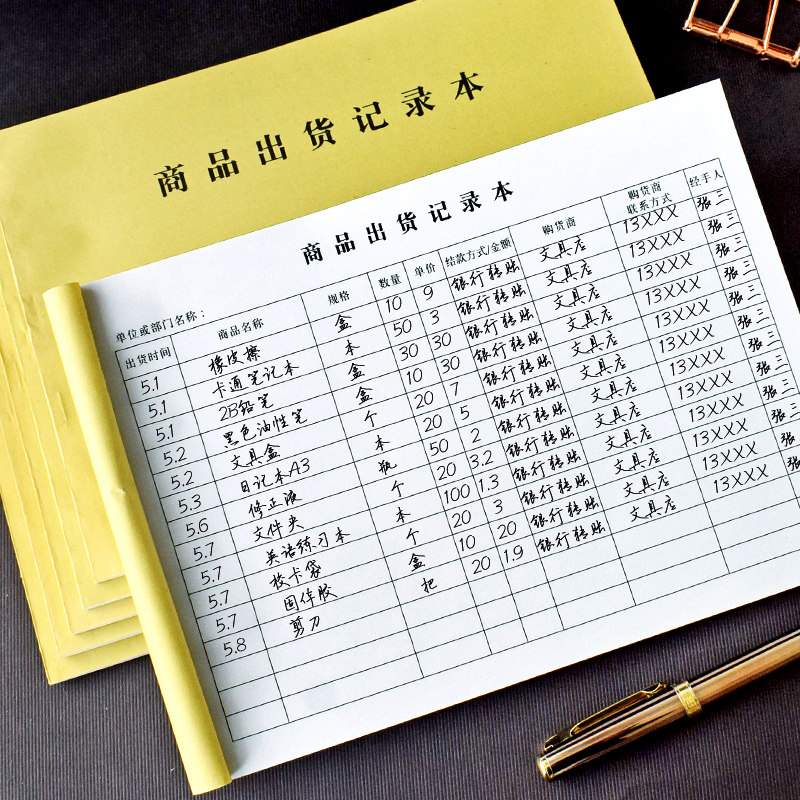 商品出货记录本
商品出货记录本
单位或部门名称：
出货时间 商品名称 规格 数量 单价 结款方式/金额 购货商 购货商联系方式 经手人
5.1 橡皮擦 盒 10 9 银行转账 文具店 13XXX 张三
5.1 卡通笔记本 本 50 3 银行转账 文具店 13XXX 张三
5.1 2B铅笔 盒 30 30 银行转账 文具店 13XXX 张三
5.2 黑色油性笔 盒 10 30 银行转账 文具店 13XXX 张三
5.2 文具盒 个 20 7 银行转账 文具店 13XXX 张三
5.3 日记本A3 本 20 5 银行转账 文具店 13XXX 张三
5.6 修正液 瓶 50 2 银行转账 文具店 13XXX 张三
5.7 文件夹 个 20 3.2 银行转账 文具店 13XXX 张三
5.7 英语练习本 本 100 1.3 银行转账 文具店 13XXX 张三
5.7 校卡袋 个 20 3 银行转账 文具店 13XXX 张三
5.7 固体胶 盒 10 20 银行转账 文具店 13XXX 张
5.8 剪刀 把 20 1.9 银行转账 文具店 13XXX 张